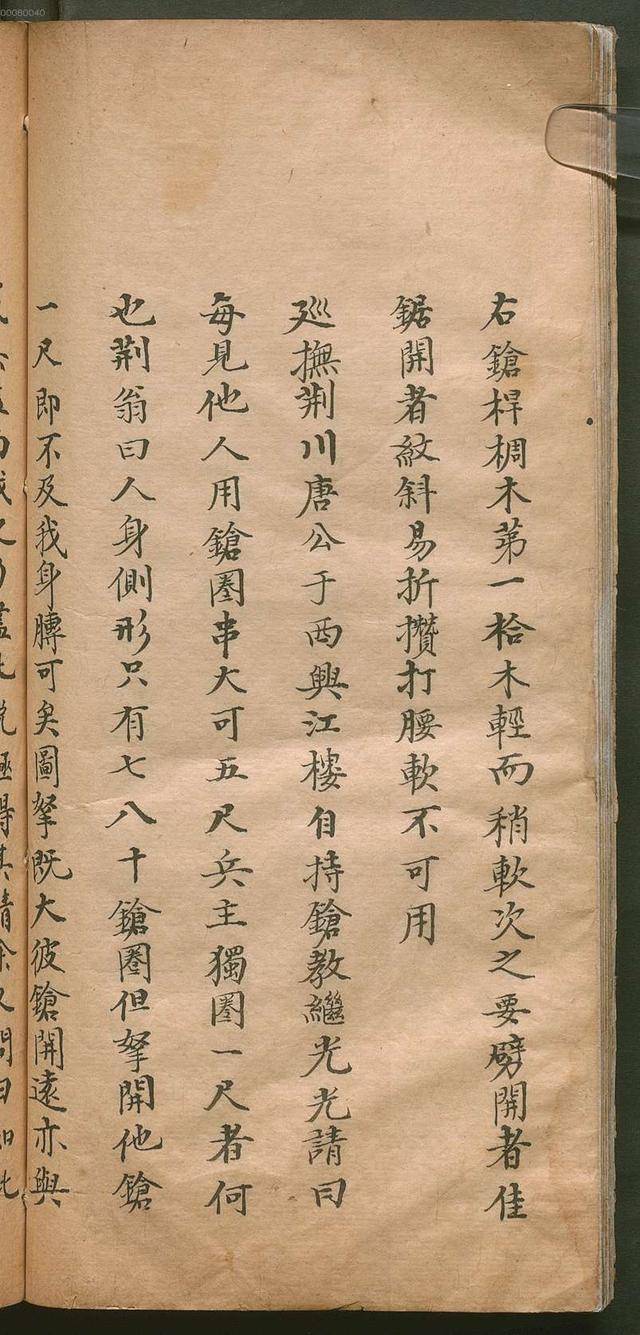 00080040
右鎗桿椆木第一枱木輕而稍軟次之要劈開者佳
鋸開者紋斜易折攢打腰軟不可用
廵撫荆川唐公于西興江樓自持鎗教繼光光請曰
每見他人用鎗圈串大可五尺兵主獨圈一尺者何
也荆翁曰人身側形只有七八十鎗圈但拏開他鎗
一尺即不及我身膊可矣圖拏既大彼鎗開遠亦與